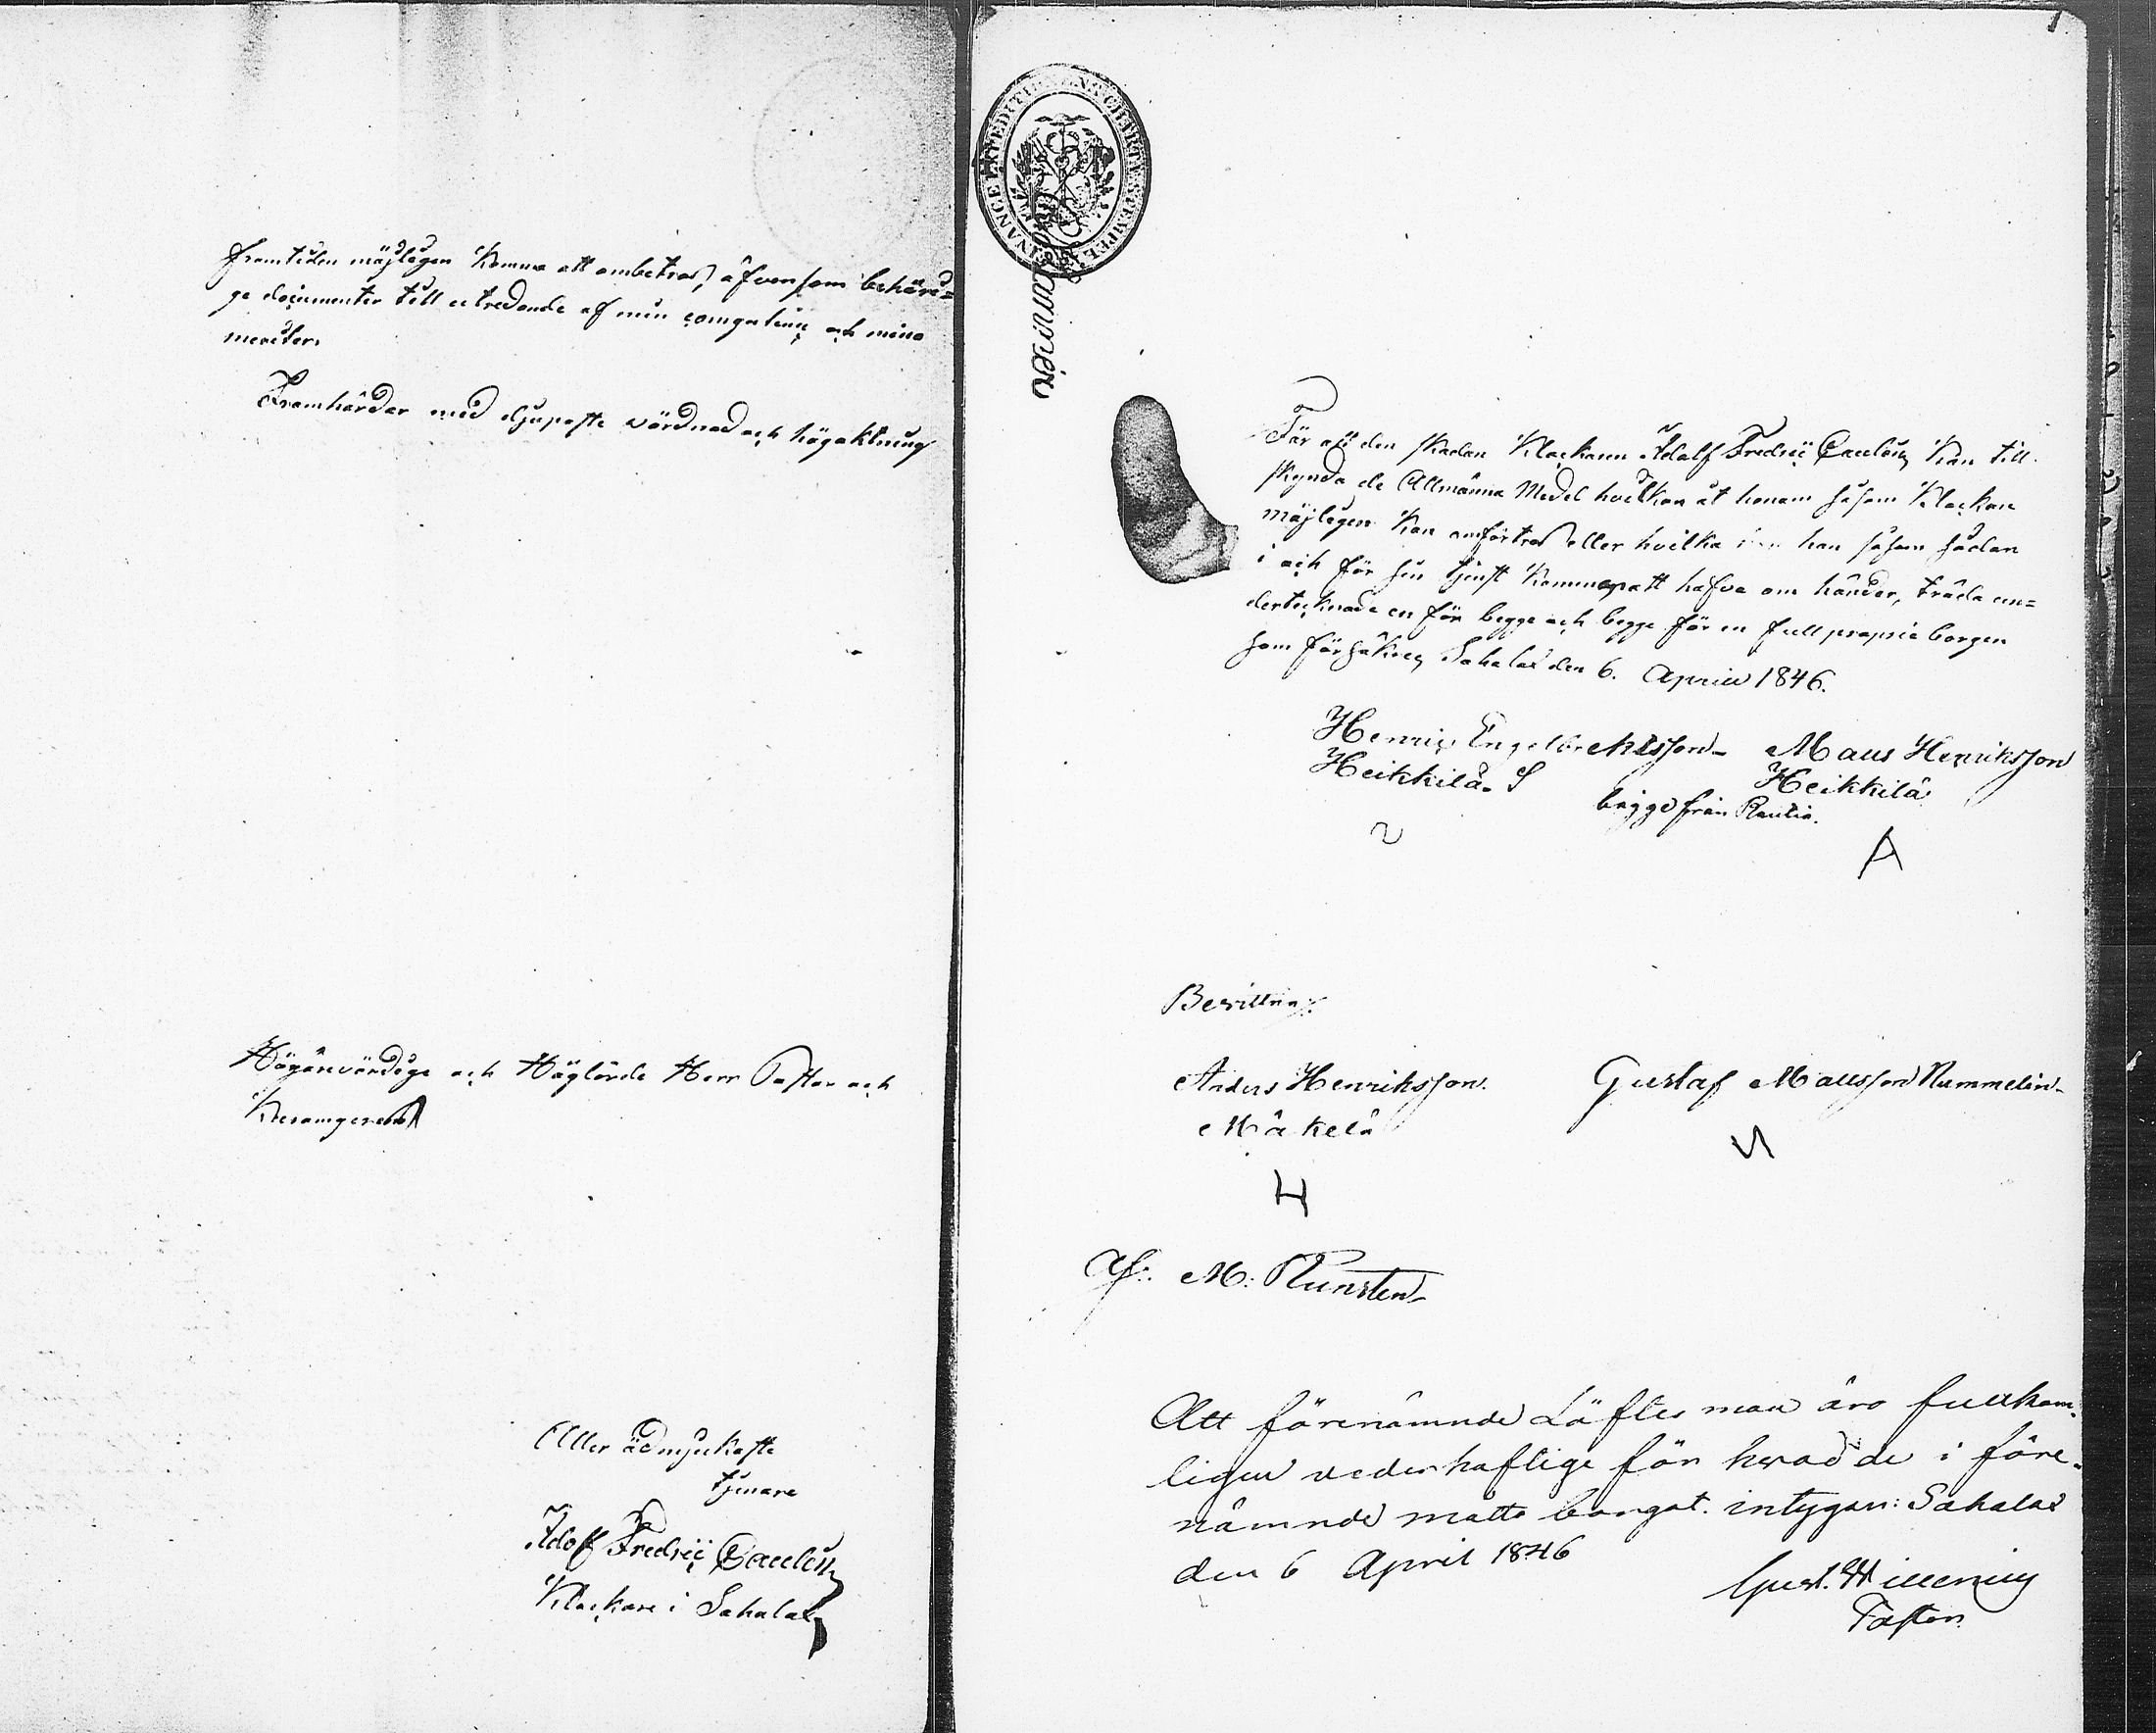 framtiden möjligen komma att ombetros, äfvensom behöri=
ge documenter till utredande af min competence och mina
meriter.
Framhärdar med djupaste vördnad och högaktning
Högärevördige och Höglärde Herr Pastor och
Adler ödmjukaste
tjenare
Adolf Fredric Paulin
Klockare i Sahalax
1
FINANCE EXPEDITIONEN CHARTÆ STEMPEL
För all den skadan Klockaren Adolf Fredric Paulin kan till
skynda de Allmänna Medel hvilken åt honom såsom Klockare
möjligen kan anförtros eller hvilka han såsom sådan
i och för sin tjenst kommer att hafva om händer, träda un=
dertecknade en för begge och begge för en full proprie borgen
som försäkras, Sahalax den 6. April 1846.
Henric Engelbrektsson Maus Henriksson
Heikkilä Heikkilä
begge från Rautia.
A
Bevittna:
Anders Henriksson Gustaf Mausson Nummelin
Mäkelä
H
Af: M: Runsten
Att förenämnde Löftes man äro fullkom=
ligen vederhaftige för hvad de i före=
nämnde måtto borgat. intygar: Sahalax
den 6 April 1846
Gust. Willenius
Pastor.